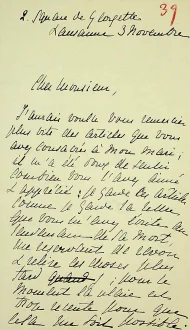 39
2. Square de Georgette
Lausanne 3 Novembre
Cher Monsieur,
J'aurais voulu vous remercier
plus vite des articles que vous
avez consacrés à mon mari ;
il m'a été doux de sentir
combien vous l'avez aimé
& apprécié : je garde ces articles
comme je garde la lettre
que vous m'avez écrite au
lendemain de la mort,
me réservant de revoir
& relire ces choses plus
tard ; pour le
moment la plaie est
trop récente pour que
cela me soit possible